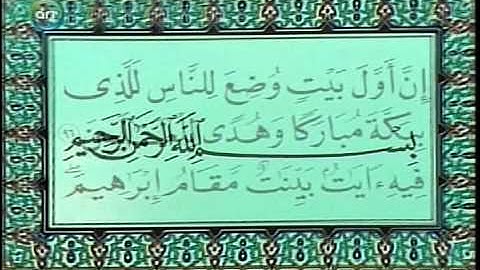 art
إِنَّ أَوَّلَ بَيْتٍ وُضِعَ لِلنَّاسِ لَلَّذِى
بِبَكَّةَ مُبَارَكًا وَهُدًى ٩٦
بسم الله الرحمن الرحيم
فِيهِ ءَايَٰتٌۢ بَيِّنَٰتٌ مَّقَامُ إِبْرَٰهِيمَ ۖ